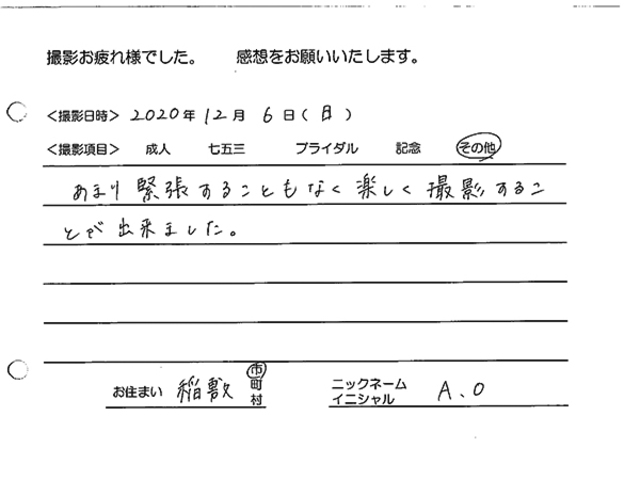 撮影お疲れ様でした。 感想をお願いいたします。
<撮影日時> 2020年 12月 6日(日)
<撮影項目> 成人 七五三 ブライダル 記念 その他
あまり緊張することもなく楽しく撮影するこ
とが出来ました。
お住まい 稲敷 市町村
ニックネーム イニシャル A.O